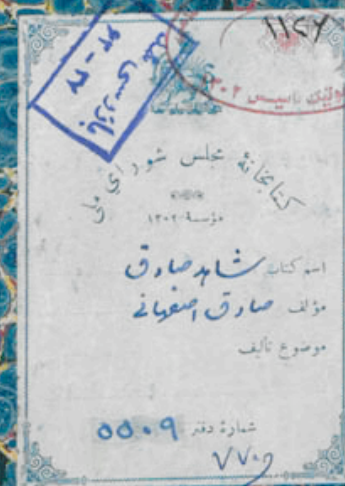 ۱۱۴۶۷
بازرسی شد
۳۷ - ۶۳
کتابخانهٔ مجلس شورای ملی
مؤسسهٔ ۱۳۰۲
اسم کتاب شاهد صادق
مؤلف صادق اصفهانی
موضوع تألیف
شمارهٔ دفتر ۵۵۰۹
۷۷۰۹